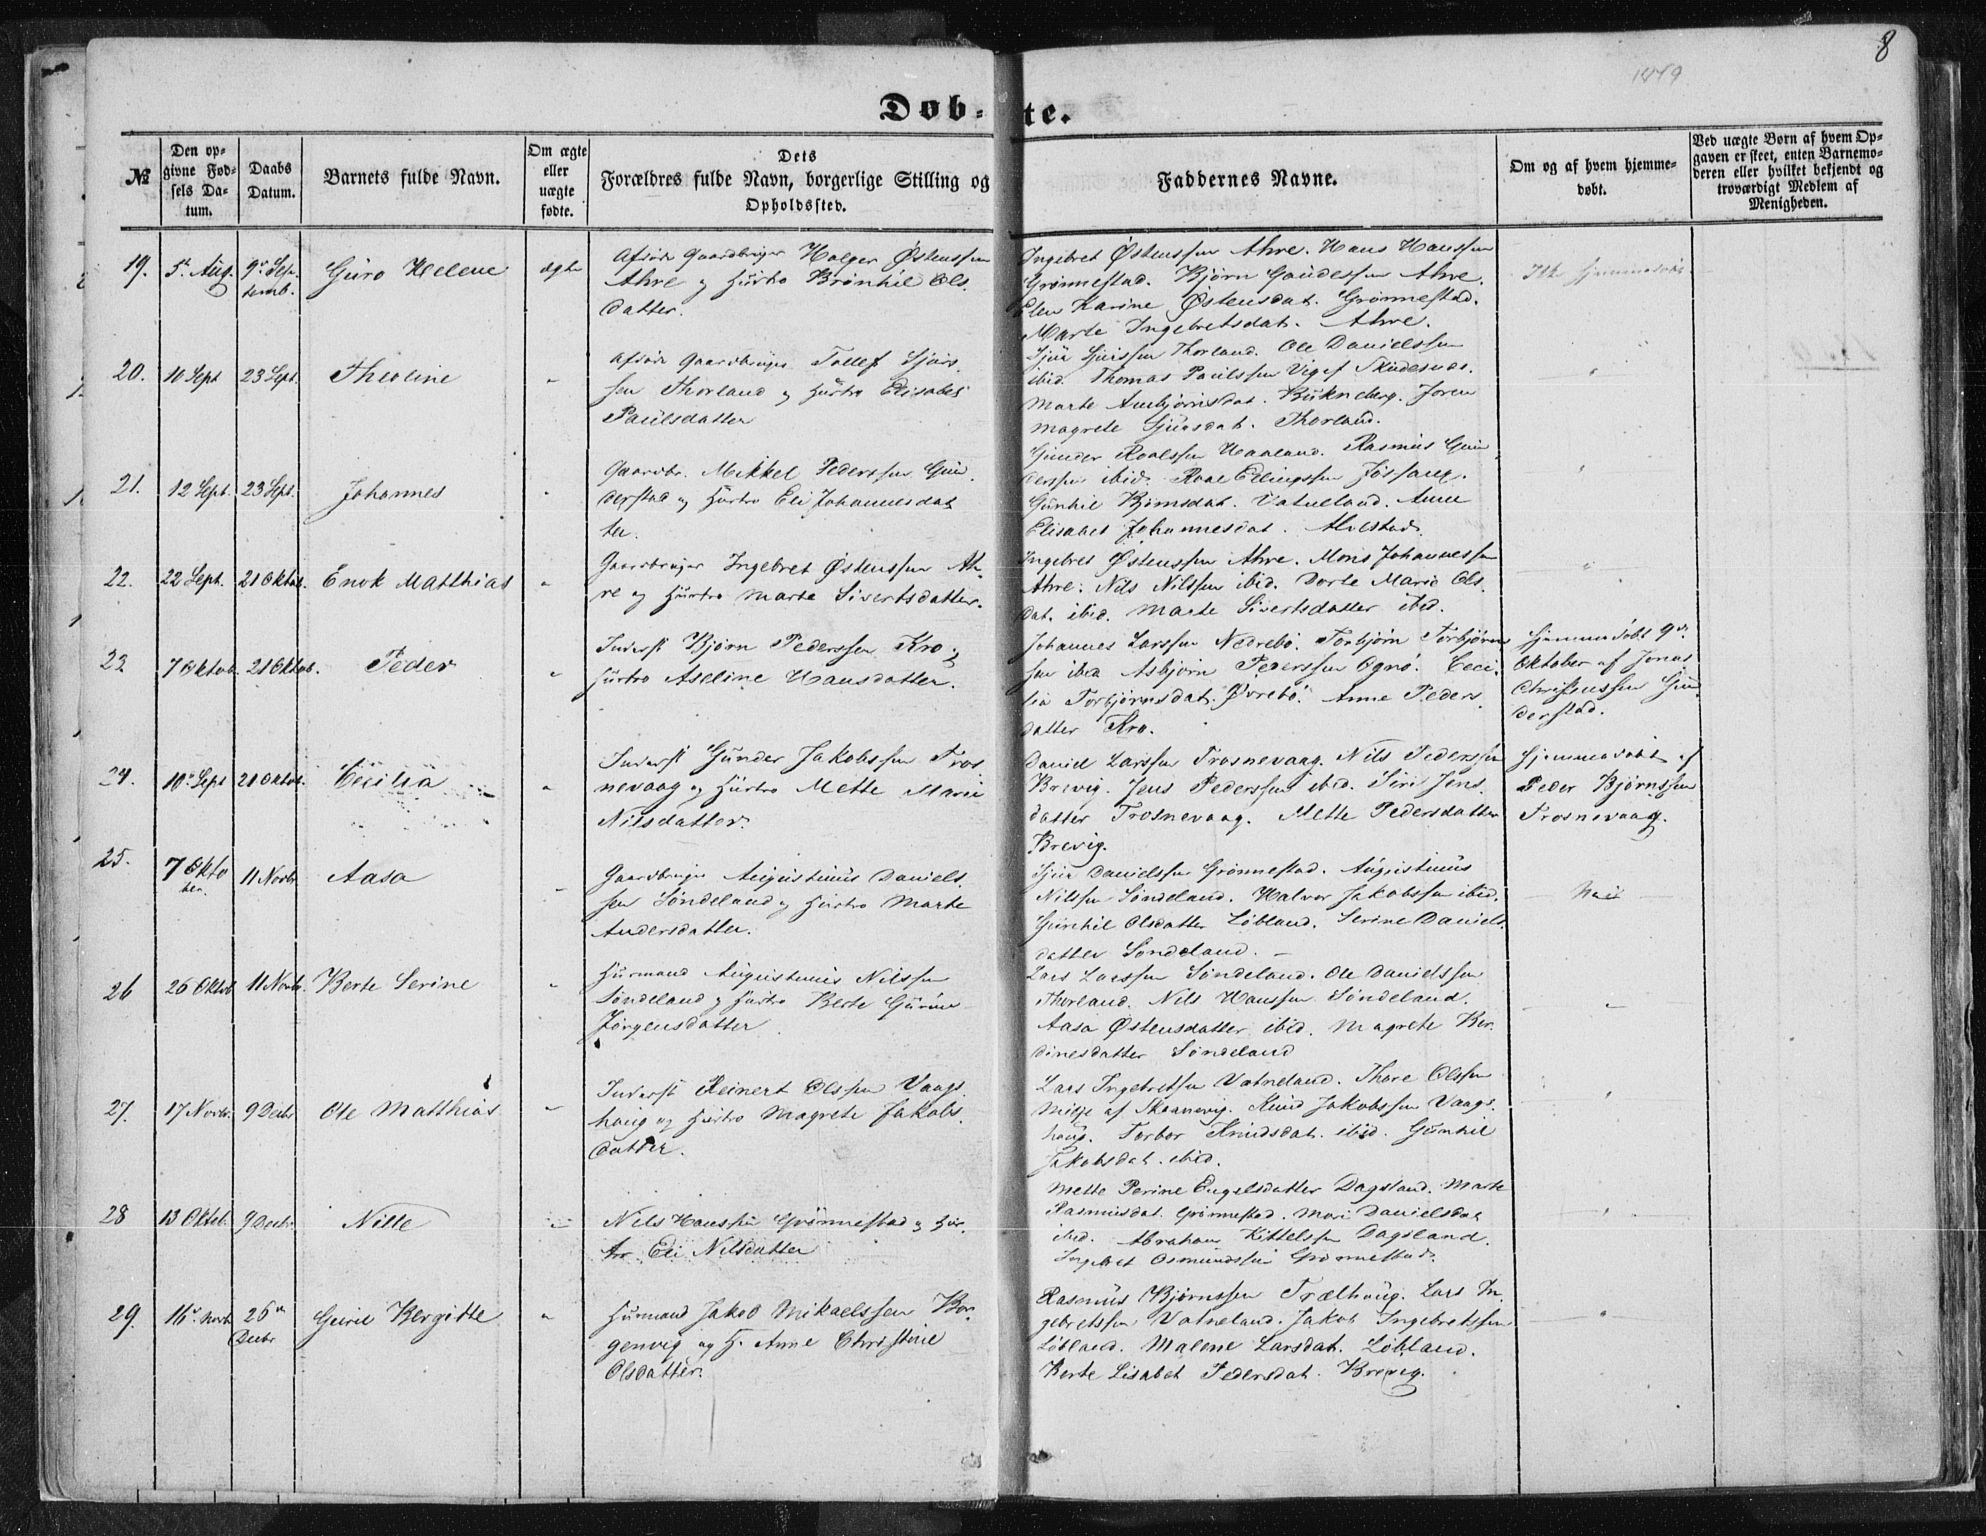 8
1849
Døb-te.
№
Den op-
givne Fød-
sels Da-
tum.
Daabs
Datum.
Barnets fulde Navn.
Om ægte
eller
uægte
fødte.
Dets
Forældres fulde Navn, borgerlige Stilling og
Opholdssted.
Faddernes Navne.
Om og af hvem hjemme-
døbt.
Ved uægte Børn af hvem Op-
gaven er skeet, enten Barnemo-
deren eller hvilket bekjendt og
troværdigt Medlem af
Menigheden.
19. 5te Aug. 9de Sep-
temb.
Guro Helene
ægte
Gaardbruger Holger Østenssen
Ahre og Hustro Brønhil Ols-
datter.
Ingebret Østenssen Ahre. Hans Hanssen
Grønnestad. Bjørn Gaudessen Ahre.
Elen Karine Østensdat. Grønnestad.
Marte Ingebretsdat. Ahre.
Ikke hjemmedøbt
20. 10 Sept 23 Sept.
Theoline
"
Gaardbruger Tollef Sjurs-
sen Thorland og Hustro Elisabet
Paulsdatter
Thorland. Ole Danielssen
ibid. Thomas Paulssen Skudesnæs.
Marte Asbjørnsdat. Bukneberg. Joren
Magrete Sjursdat. Thorland.
"
21. 12 Sept. 23 Sept.
Johannes
"
Gaardbr. Mikkel Pederssen Gun-
derstad og Hustro Eli Johannesdat-
ter.
Gunder Roalssen Haaland. Rasmus Gun-
derssen ibid. Roal Jøssang.
Gunhil Bjørnsdat. Vatneland. Anne
Elisabet Johannesdat. Alvestad.
"
22. 22 Sept. 21 Oktob.
Enok Matthias
"
Gaardbruger Ingebret Østenssen Ah-
re og Hustro Marte Sivertsdatter.
Ingebret Østenssen Ahre. Mons Johannessen
Ahre. Nils Nilssen ibid. Dorte Marie Ols-
dat. ibid. Marte Sivertsdatter ibid.
"
23 7 Oktob. 21 Oktob.
Peder
"
Inderst Bjørn Pederssen Kro og
Hustro Aseline Hansdatter.
Johannes Larssen Nedrebø. Torbjørn Torbjørns-
sen ibid Asbjørn Pederssen Ognø. Ceci-
lia Torbjørnsdat. Øvrebø. Anne Peders-
datter Kro.
Hjemmedøbt 9de
Oktober af Jonas
Christenssen Gun-
derstad.
24. 10de Sept 21 Oktob.
Cecilia
"
Inderst Gunder Jakobssen Tros-
nevaag og Hustro Mette Marie
Nilsdatter.
Daniel Larssen Trosnevaag. Nils Pederssen
Brevig. Jens Pederssen ibid. Siri Jens-
datter Trosnevaag. Mette Pedersdatter
Brevig.
Hjemmedøbt af
Peder Bjørnssen
Trosnevaag.
25. 7 Okto-
ber. 11 Novbr
Aasa
"
Gaardbruger Augustinus Daniels-
sen Søndeland og Hustro Marte
Andersdatter.
Sjur Danielssen Grønnestad. Augustinus
Nilssen Søndeland. Halvor Jakobssen ibid.
Gunhil Olsdatter Løbland. Serine Daniels-
datter Søndeland.
Nei
26 26 Oktob 11 Novbr.
Berte Serine
"
Husmand Augustinus Nilssen
Søndeland og Hustro Berte Gurine
Jørgensdatter
Lars Larssen Søndeland. Ole Danielssen
Thorland. Nils Hanssen Søndeland.
Aasa Østensdatter ibid. Magrete Ber-
dinesdatter Søndeland
"
27. 17 Novbr. 9 Decbr
Ole Matthias
"
Inderst Reinert Olssen Vaags-
houg og Hustro Magrete Jakobs-
datter.
Lars Ingebretsen Vatneland. Thore Olssen
af Skaanevig. Knud Jakobssen Vaags-
houg. Torbor Knudsdat. ibid. Gunhil
Jakobsdat. ibid.
"
28 13 Oktob. 9 Decbr
Nille
"
Nils Hanssen Grønnestad og Hus-
tro Eli Nilsdatter
Mette Perine Engelsdatter Dagsland. Marte
Rasmusdat. Grønnestad. Mari Danielsdat
ibid. Abraham Kittelssen Dagsland.
Ingebret Osmundssen Grønnestad.
"
29. 16de Novb 26de
Decbr
Guril Bergitte
"
Husmand Jakob Mikaelssen Bor-
genvig og H. Anne Christine
Olsdatter.
Rasmus Bjørnssen Trælhoug. Lars In-
gebretssen Vatneland. Jakob Ingebretssen
Løbland. Malene Larsdat. Løbland.
Berte Lisabet Pedersdat. Brevig.
"